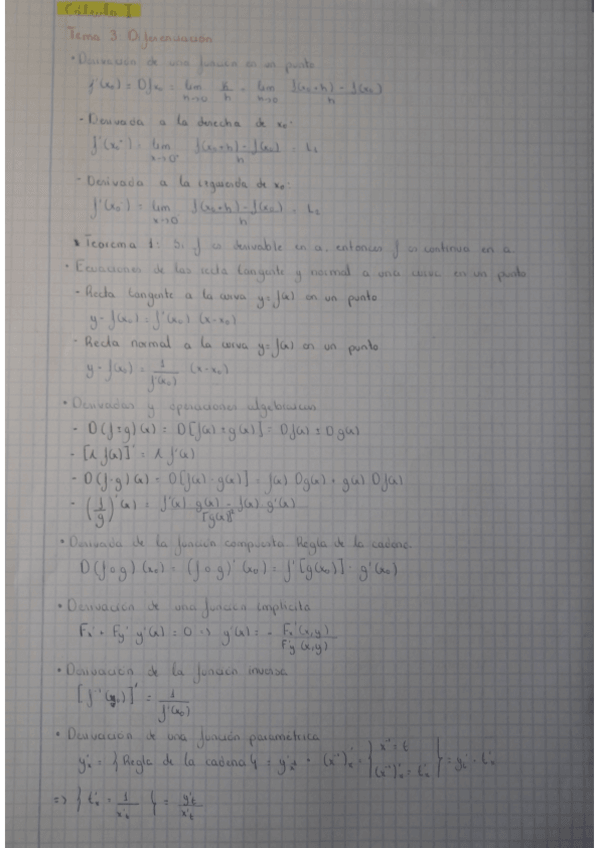 Cálculo I
Tema 3 Diferenciación
• Derivación de una función en un punto
f'(x₀) = Df x₀ = lim h→0 k/h = lim h→0 (f(x₀+h) - f(x₀))/h
- Derivada a la derecha de x₀:
f'(x₀⁺) = lim x→0⁺ (f(x₀+h) - f(x₀))/h = L₁
- Derivada a la izquierda de x₀:
f'(x₀⁻) = lim x→0⁻ (f(x₀+h) - f(x₀))/h = L₂
• Teorema 1: Si f es derivable en a, entonces f es continua en a
• Ecuaciones de las recta tangente y normal a una curva en un punto
- Recta tangente a la curva y=f(x) en un punto
y - f(x₀) = f'(x₀) (x-x₀)
- Recta normal a la curva y=f(x) en un punto
y - f(x₀) = 1/f'(x₀) (x-x₀)
• Derivadas y operaciones algebraicas
- D(f±g)(x) = D[f(x) ± g(x)] = Df(x) ± Dg(x)
- [λ f(x)]' = λ f'(x)
- D(f·g)(x) = D[f(x)·g(x)] = f(x) Dg(x) + g(x) Df(x)
- (f/g)'(x) = (f'(x) g(x) - f(x) g'(x))/[g(x)]²
• Derivada de la función compuesta. Regla de la cadena.
D(f∘g)(x₀) = (f∘g)'(x₀) = f'[g(x₀)] · g'(x₀)
• Derivación de una función implícita
Fx' + Fy' y'(x) = 0 => y'(x) = - Fx'(x,y)/Fy'(x,y)
• Derivación de la función inversa
[f⁻¹(y₀)]' = 1/f'(x₀)
• Derivación de una función paramétrica
y'x = { Regla de la cadena } = y't · (x⁻¹)'t = { x⁻¹ = t (x⁻¹)'x = t'x } = y't · t'x
=> { t'x = 1/x't } = y't/x't